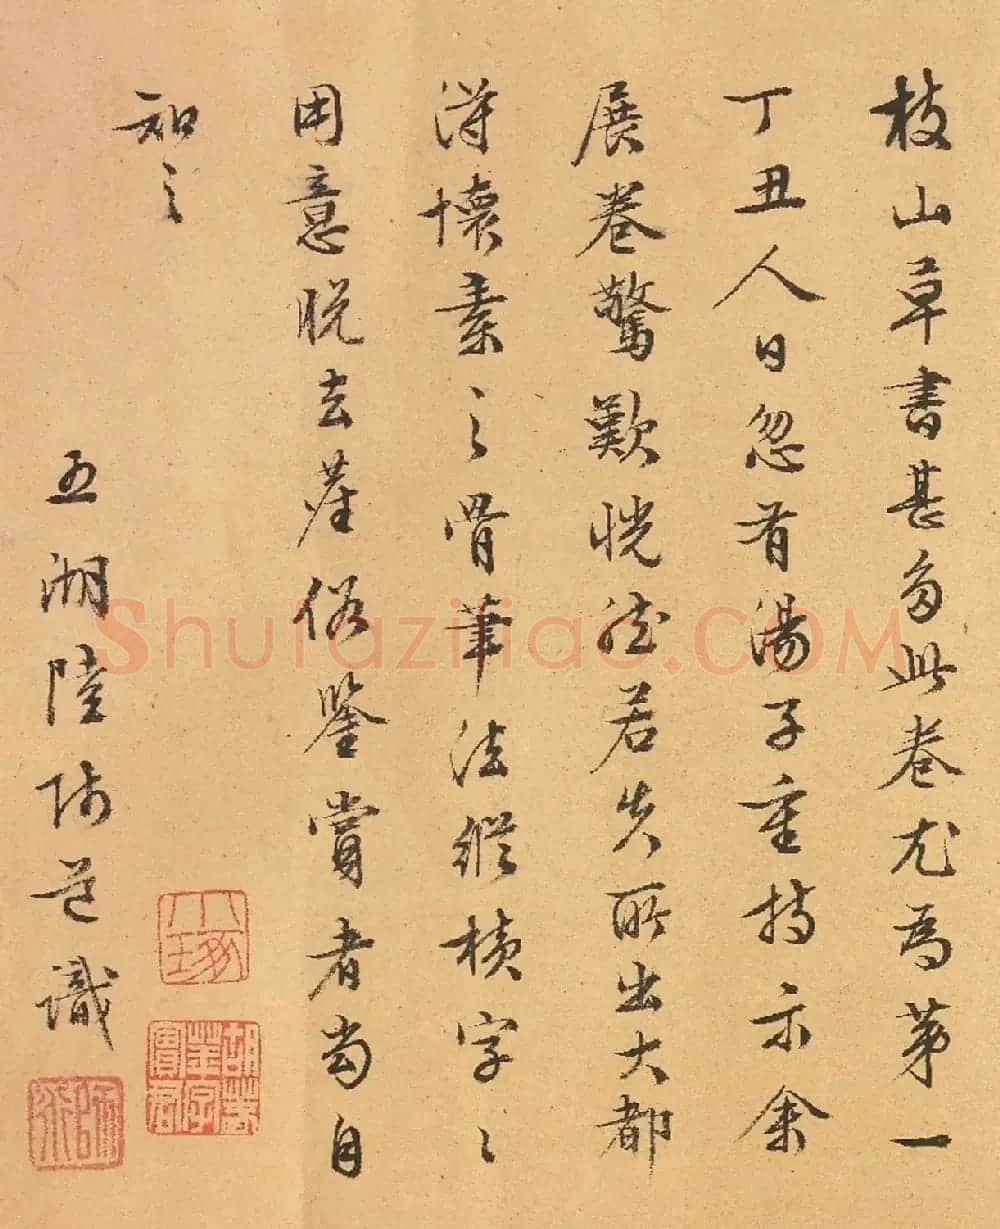 枝山草書甚多此卷尤為第一
丁丑人日忽有湯子重持示余
展卷驚歎恍然若失所出大都
得懷素之骨筆法縱橫字〻
用意脫去塵俗鑒賞者當自
知之
五湖陸師道識
Shufaziliao.COM